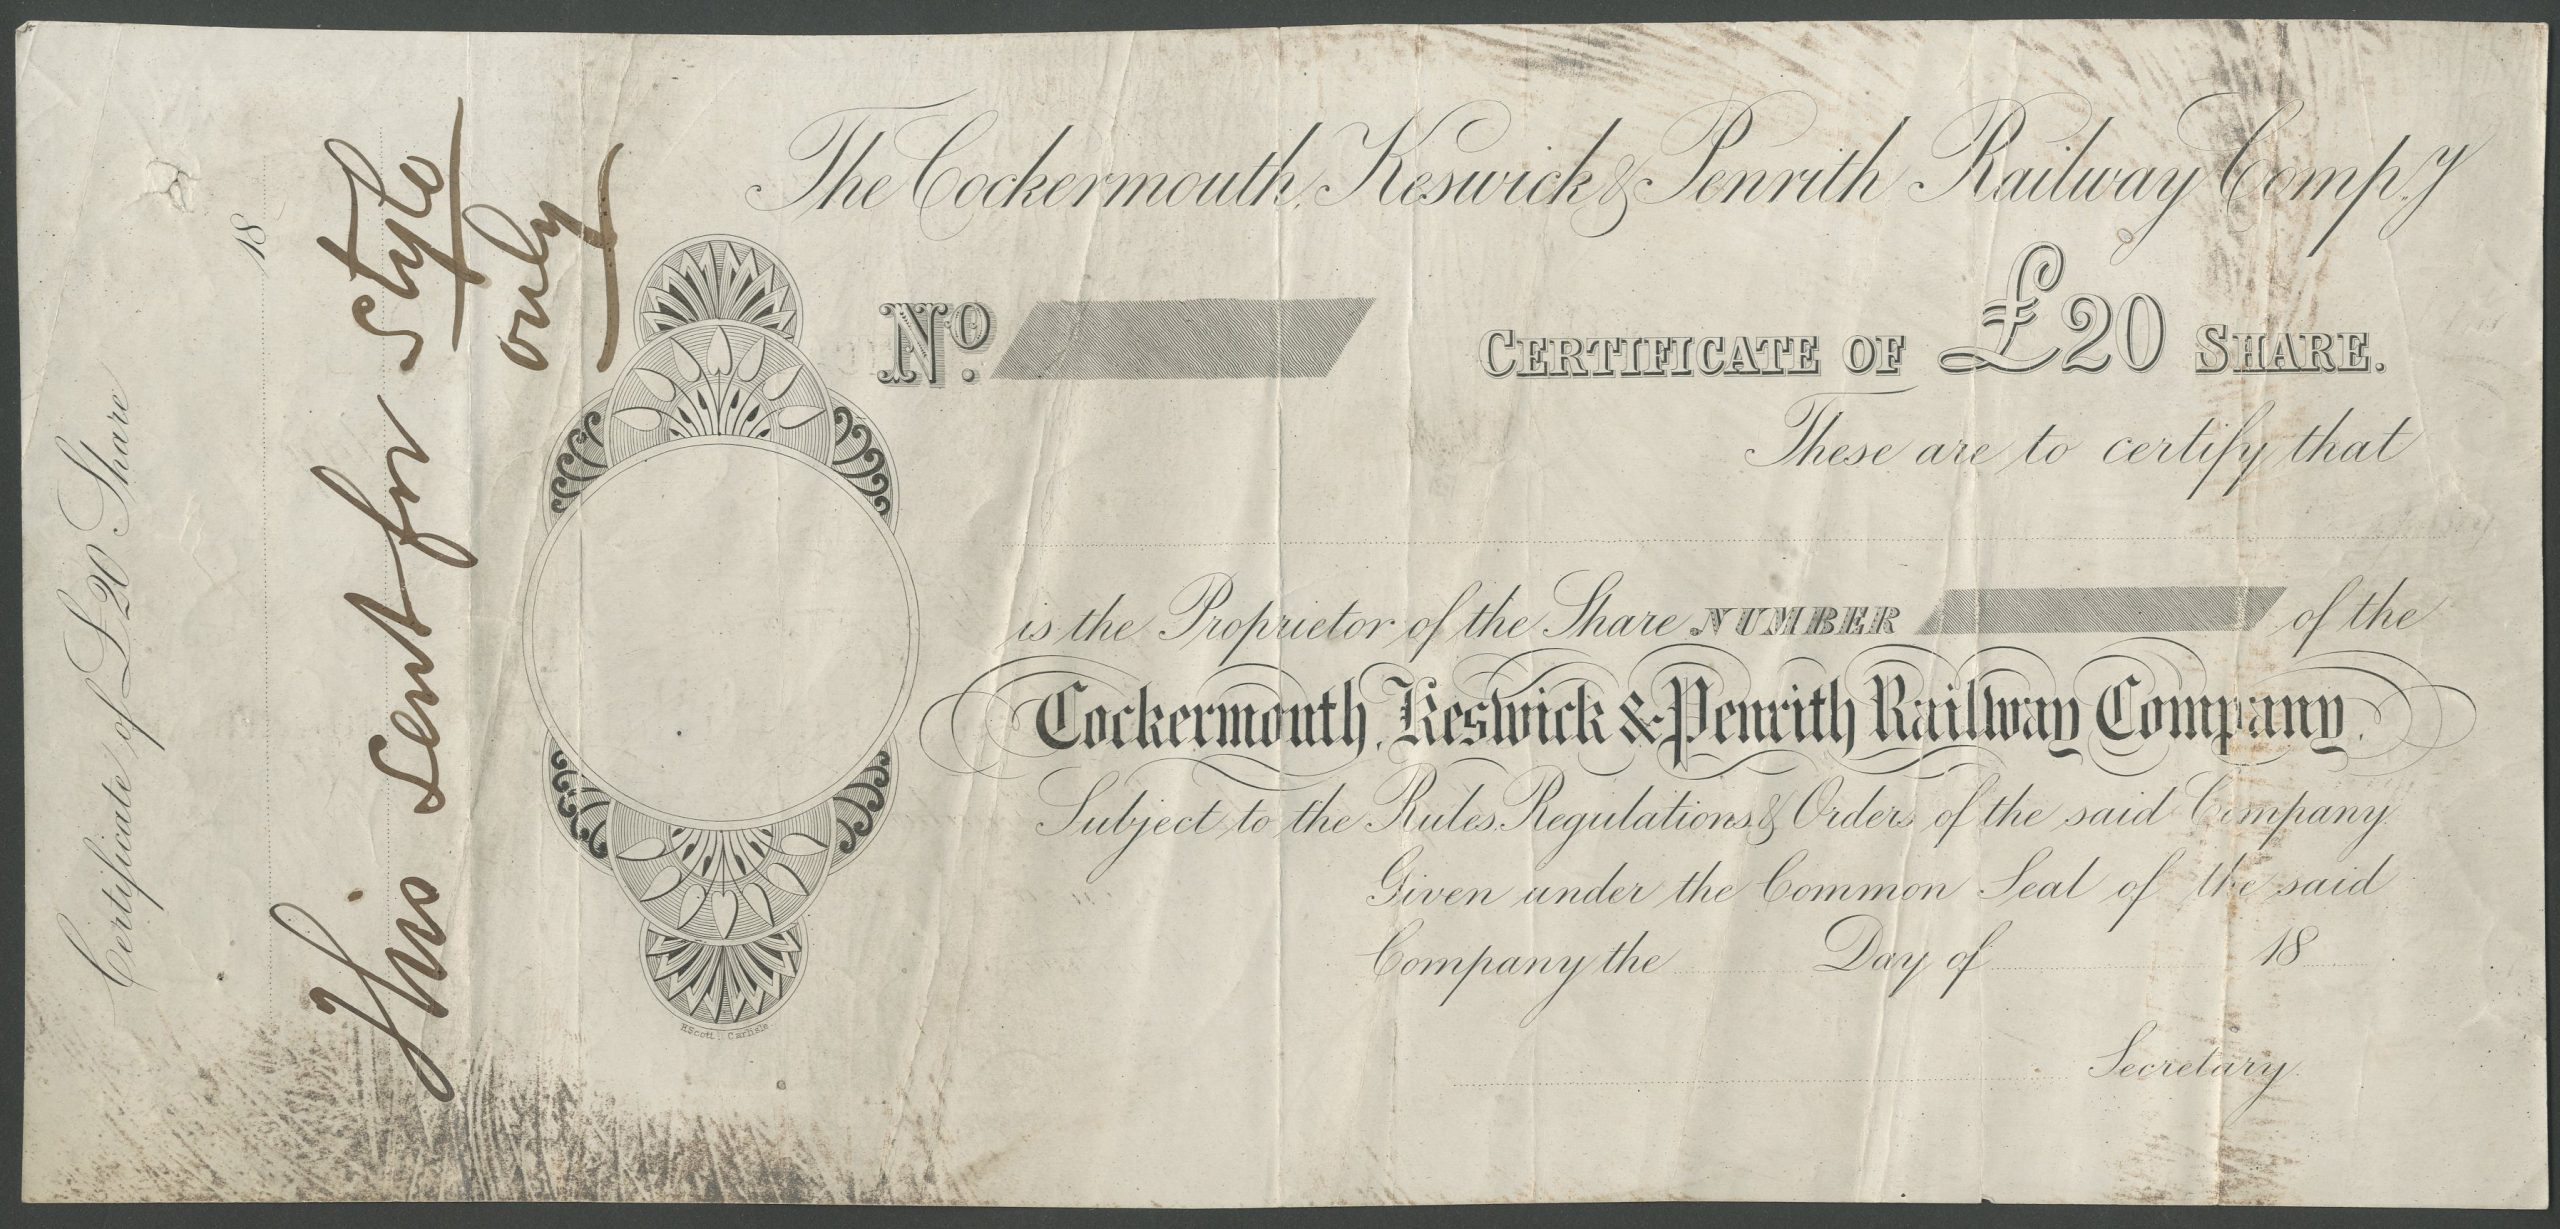 Certificate of £20 Share
18
This sent for style
only
The Cockermouth, Keswick & Penrith Railway Comp.y
No. CERTIFICATE OF £20 SHARE.
These are to certify that
is the Proprietor of the Share NUMBER of the
Cockermouth, Keswick & Penrith Railway Company.
Subject to the Rules, Regulations & Orders of the said Company.
Given under the Common Seal of the said
Company the Day of 18
Secretary.
H Scott, Carlisle